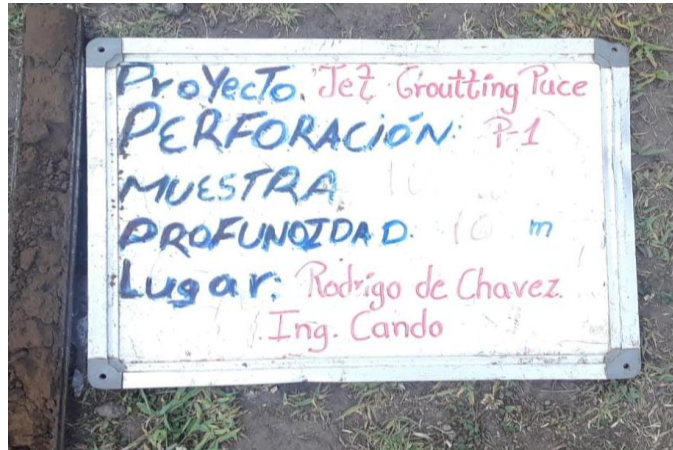 Proyecto. Jet Groutting Puce
PERFORACIÓN: P-1
MUESTRA
PROFUNDIDAD. 10 m
Lugar: Rodrigo de Chavez.
Ing. Cando